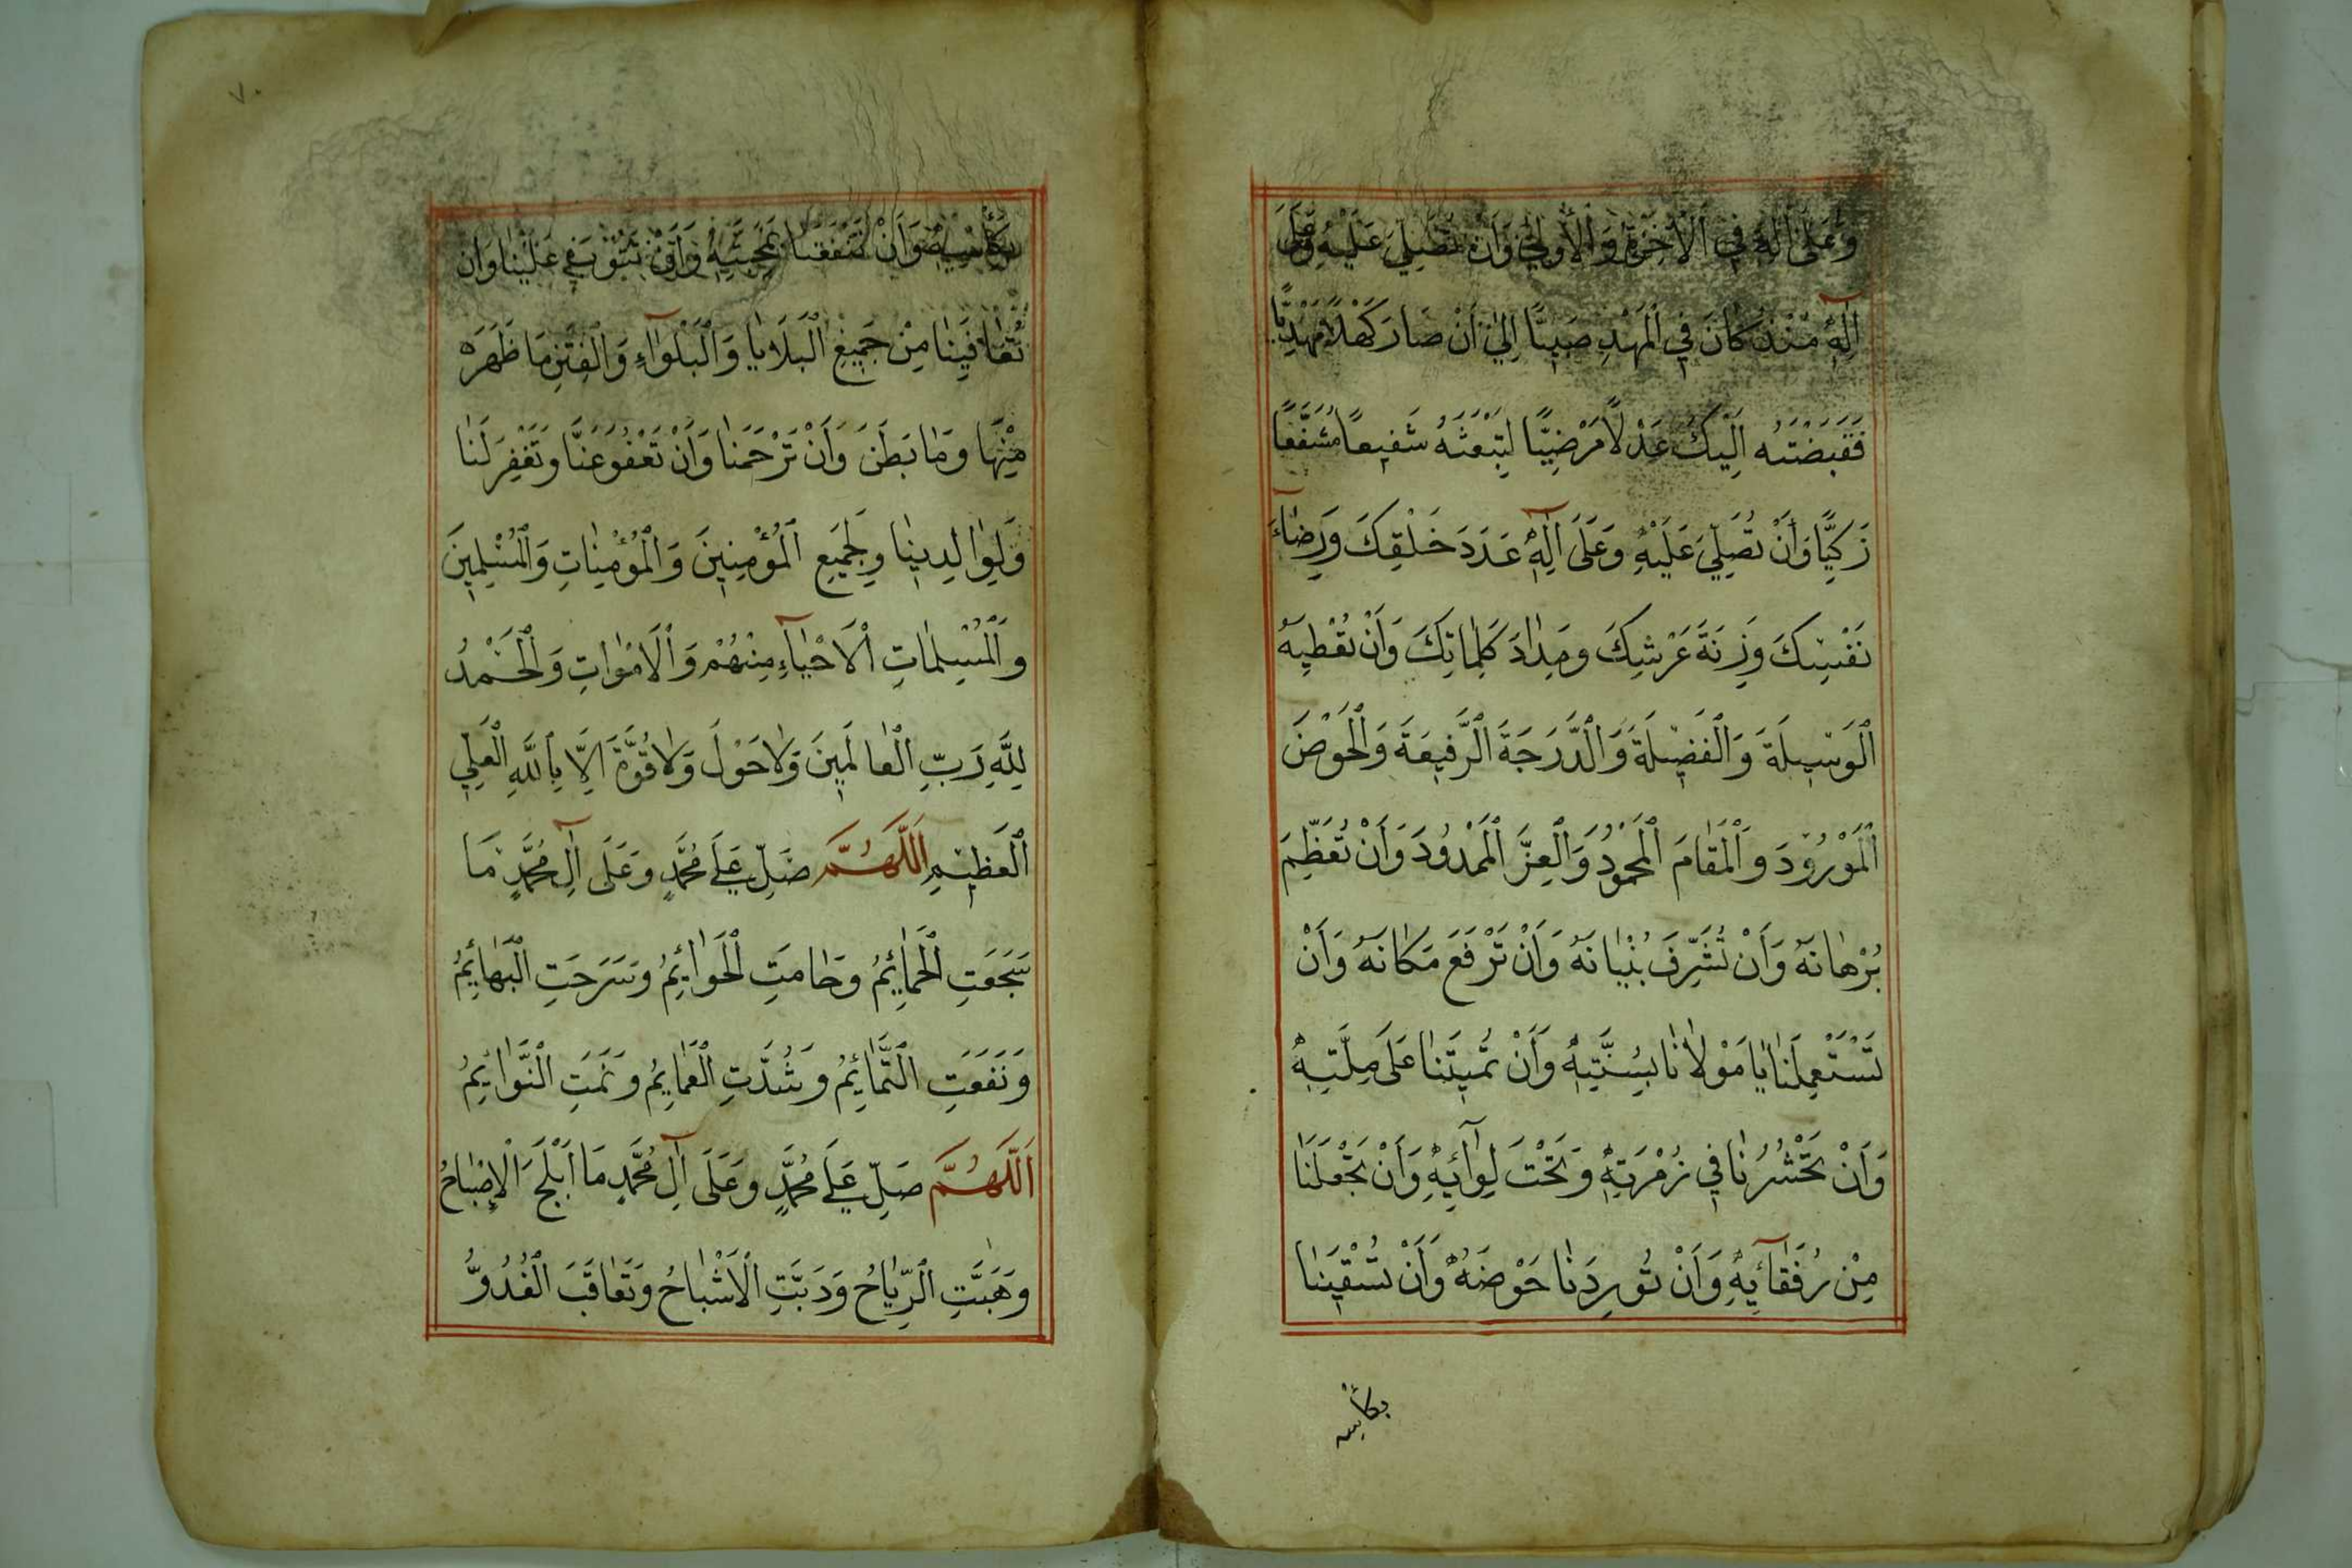 وَعَلَى اٰلِهِ فِي الْاٰخِرَةِ وَالْاُولٰي وَاَنْ تُصَلِّيَ عَلَيْهِ وَعَلَى
اٰلِهِ مُنْذُ كَانَ فِي الْمَهْدِ صَبِيًّا اِلٰي اَنْ صَارَ كَهْلًا مَهْدِيًّا
فَقَبَضْتَهُ اِلَيْكَ عَدْلًا مَرْضِيًّا لِتَبْعَثَهُ شَفِيعًا مُشَفَّعًا
زَكِيًّا وَاَنْ تُصَلِّيَ عَلَيْهِ وَعَلَى اٰلِهِ عَدَدَ خَلْقِكَ وَرِضَآءَ
نَفْسِكَ وَزِنَةَ عَرْشِكَ وَمِدَادَ كَلِمَاتِكَ وَاَنْ تُعْطِيَهُ
الْوَسِيلَةَ وَالْفَضِيلَةَ وَالدَّرَجَةَ الرَّفِيعَةَ وَالْحَوْضَ
الْمَوْرُودَ وَالْمَقَامَ الْمَحْمُودَ وَالْعِزَّ الْمَمْدُودَ وَاَنْ تُعَظِّمَ
بُرْهَانَهُ وَاَنْ تُشَرِّفَ بُنْيَانَهُ وَاَنْ تَرْفَعَ مَكَانَهُ وَاَنْ
تَسْتَعْمِلَنَا يَا مَوْلَانَا بِسُنَّتِهِ وَاَنْ تُمِيتَنَا عَلَى مِلَّتِهِ
وَاَنْ تَحْشُرَنَا فِي زُمْرَتِهِ وَتَحْتَ لِوَآئِهِ وَاَنْ تَجْعَلَنَا
مِنْ رُفَقَآئِهِ وَاَنْ تُورِدَنَا حَوْضَهُ وَاَنْ تُسْقِيَنَا
بكأسه
٧٠
بِكَأْسِهِ وَاَنْ تَنْفَعَنَا بِمَحَبَّتِهِ وَاَنْ تَتُوبَ عَلَيْنَا وَاَنْ
تُعَافِيَنَا مِنْ جَمِيعِ الْبَلَايَا وَالْبَلْوَآءِ وَالْفِتَنِ مَا ظَهَرَ
مِنْهَا وَمَا بَطَنَ وَاَنْ تَرْحَمَنَا وَاَنْ تَعْفُوَ عَنَّا وَتَغْفِرَ لَنَا
وَلِوَالِدِينَا وَلِجَمِيعِ الْمُؤْمِنِينَ وَالْمُؤْمِنَاتِ وَالْمُسْلِمِينَ
وَالْمُسْلِمَاتِ الْاَحْيَآءِ مِنْهُمْ وَالْاَمْوَاتِ وَالْحَمْدُ
لِلّٰهِ رَبِّ الْعَالَمِينَ وَلَا حَوْلَ وَلَا قُوَّةَ اِلَّا بِاللّٰهِ الْعَلِيِّ
الْعَظِيمِ اَللّٰهُمَّ صَلِّ عَلَى مُحَمَّدٍ وَعَلَى آلِ مُحَمَّدٍ مَا
سَجَعَتِ الْحَمَائِمُ وَحَامَتِ الْحَوَائِمُ وَسَرَحَتِ الْبَهَائِمُ
وَنَفَعَتِ التَّمَائِمُ وَشُدَّتِ الْعَمَائِمُ وَنَمَتِ النَّوَائِمُ
اَللّٰهُمَّ صَلِّ عَلَى مُحَمَّدٍ وَعَلَى آلِ مُحَمَّدٍ مَا اَبْلَجَ الْاِصْبَاحُ
وَهَبَّتِ الرِّيَاحُ وَدَبَّتِ الْاَشْبَاحُ وَتَعَاقَبَ الْغُدُوُّ